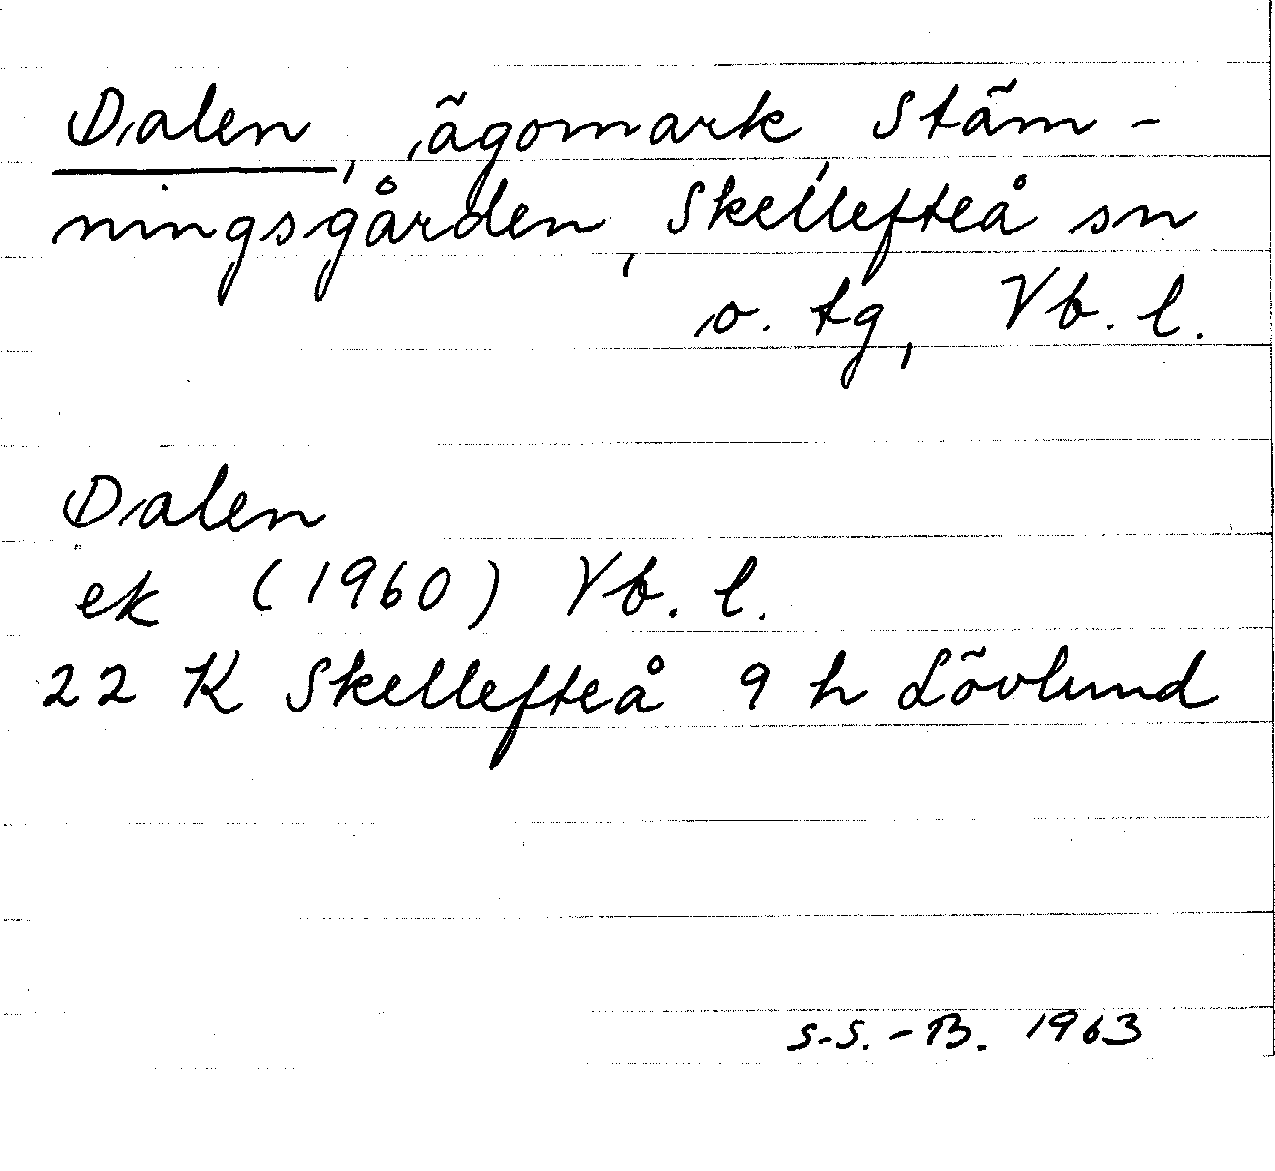 Dalen, ägomark, Stäm-
ningsgården, Skellefteå sn
o. tg, Vb. l.
Dalen
ek (1960) Vb. l.
22 K Skellefteå 9 h Lövlund
S-S. - B. 1963